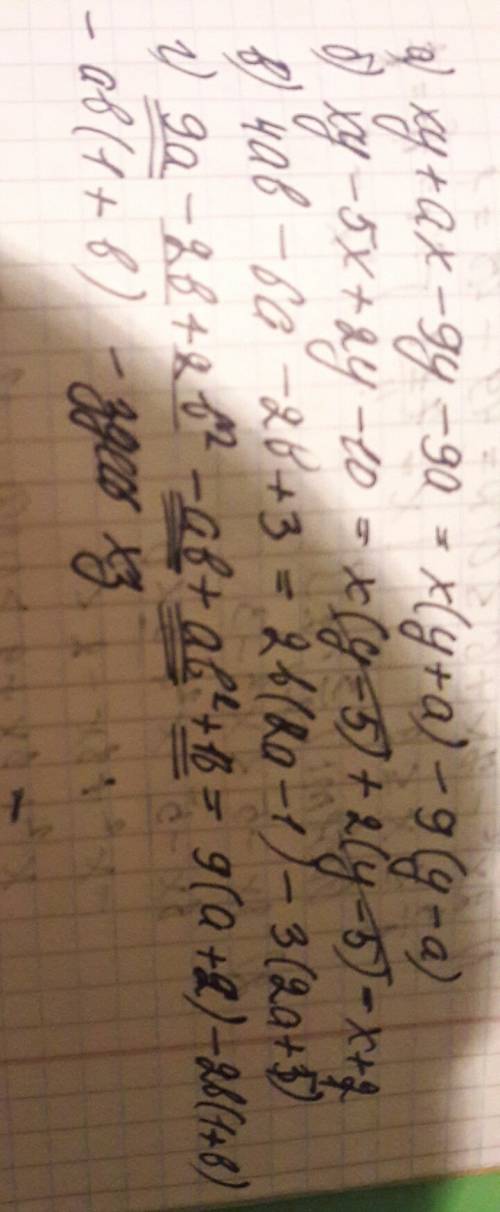 а) xy + ax - 9y - 9a = x(y + a) - 9(y - a)
б) xy - 5x + 2y - 10 = x(y - 5) + 2(y - 5) = x + 2
в) 4ab - 6a - 2b + 3 = 2b(2a - 1) - 3(2a + 1)
г) 9a - 2b + 2b² - ab + ab² + 18 = 9(a + 2) - 2b(1 + b)
- ab(1 + b) -